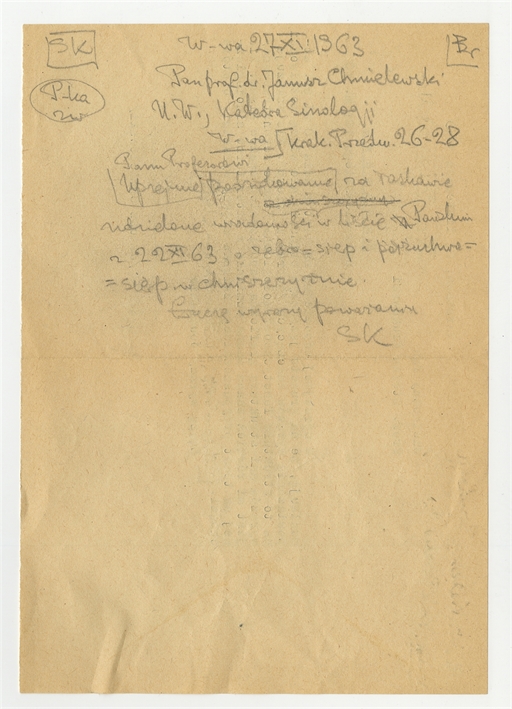 SK
W-wa, 27 XI 1963
Br
P-ka
zw
Pan prof. dr. Janusz Chmielewski
U.W., Katedra Sinologji
W-wa Krak. Przedm. 26-28
Panu Profesorowi
Uprzejmie podziękowanie za łaskawie
udzielone wiadomości w liście
z 22 XI 63, o żebro= sięp i
= sięp w chińszczyźnie.
Łączę wyrazy poważania
SK